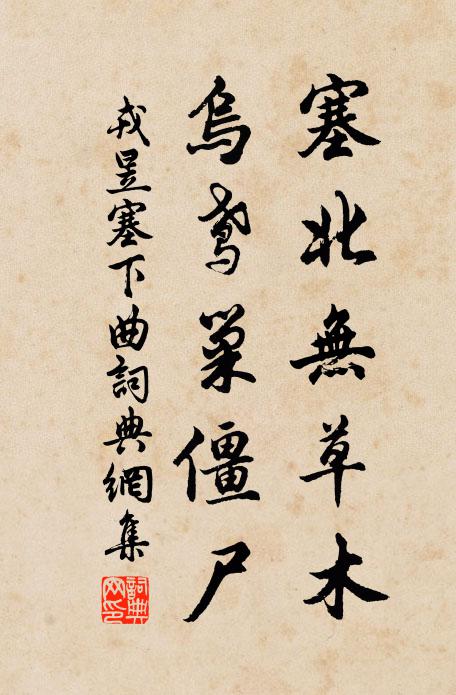 塞北無草木
烏鳶巢僵尸
戎昱塞下曲詞典網集
詞典网印